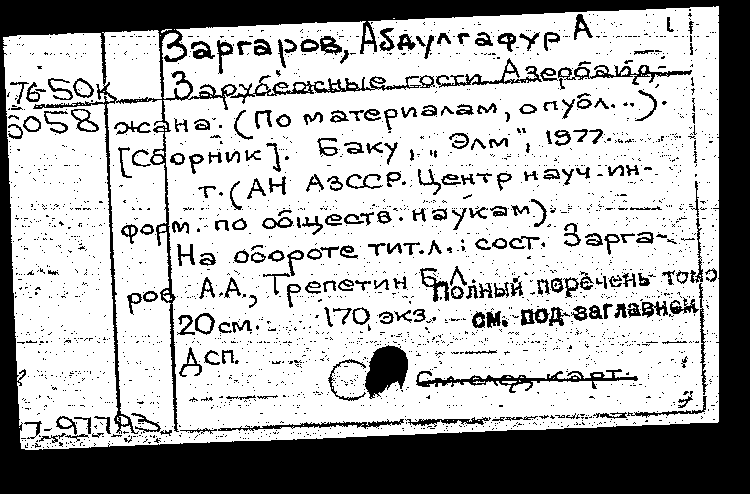 Заргаров, Абдулгафур А
Зарубежные гости Азербайд-
76-50к
6058
жана. (По материалам, опубл...).
[Сборник]. Баку, „Элм", 1977.
т. (АН АзССР. Центр науч. ин-
форм. по обществ. наукам).
На обороте тит. л.: сост. Зарга-
ров А.А., Трепетин Б.Л.
Полный перечень томов
20 см. 170 экз.
см. под заглавием
Дсп.
См. след. карт.
7-97793